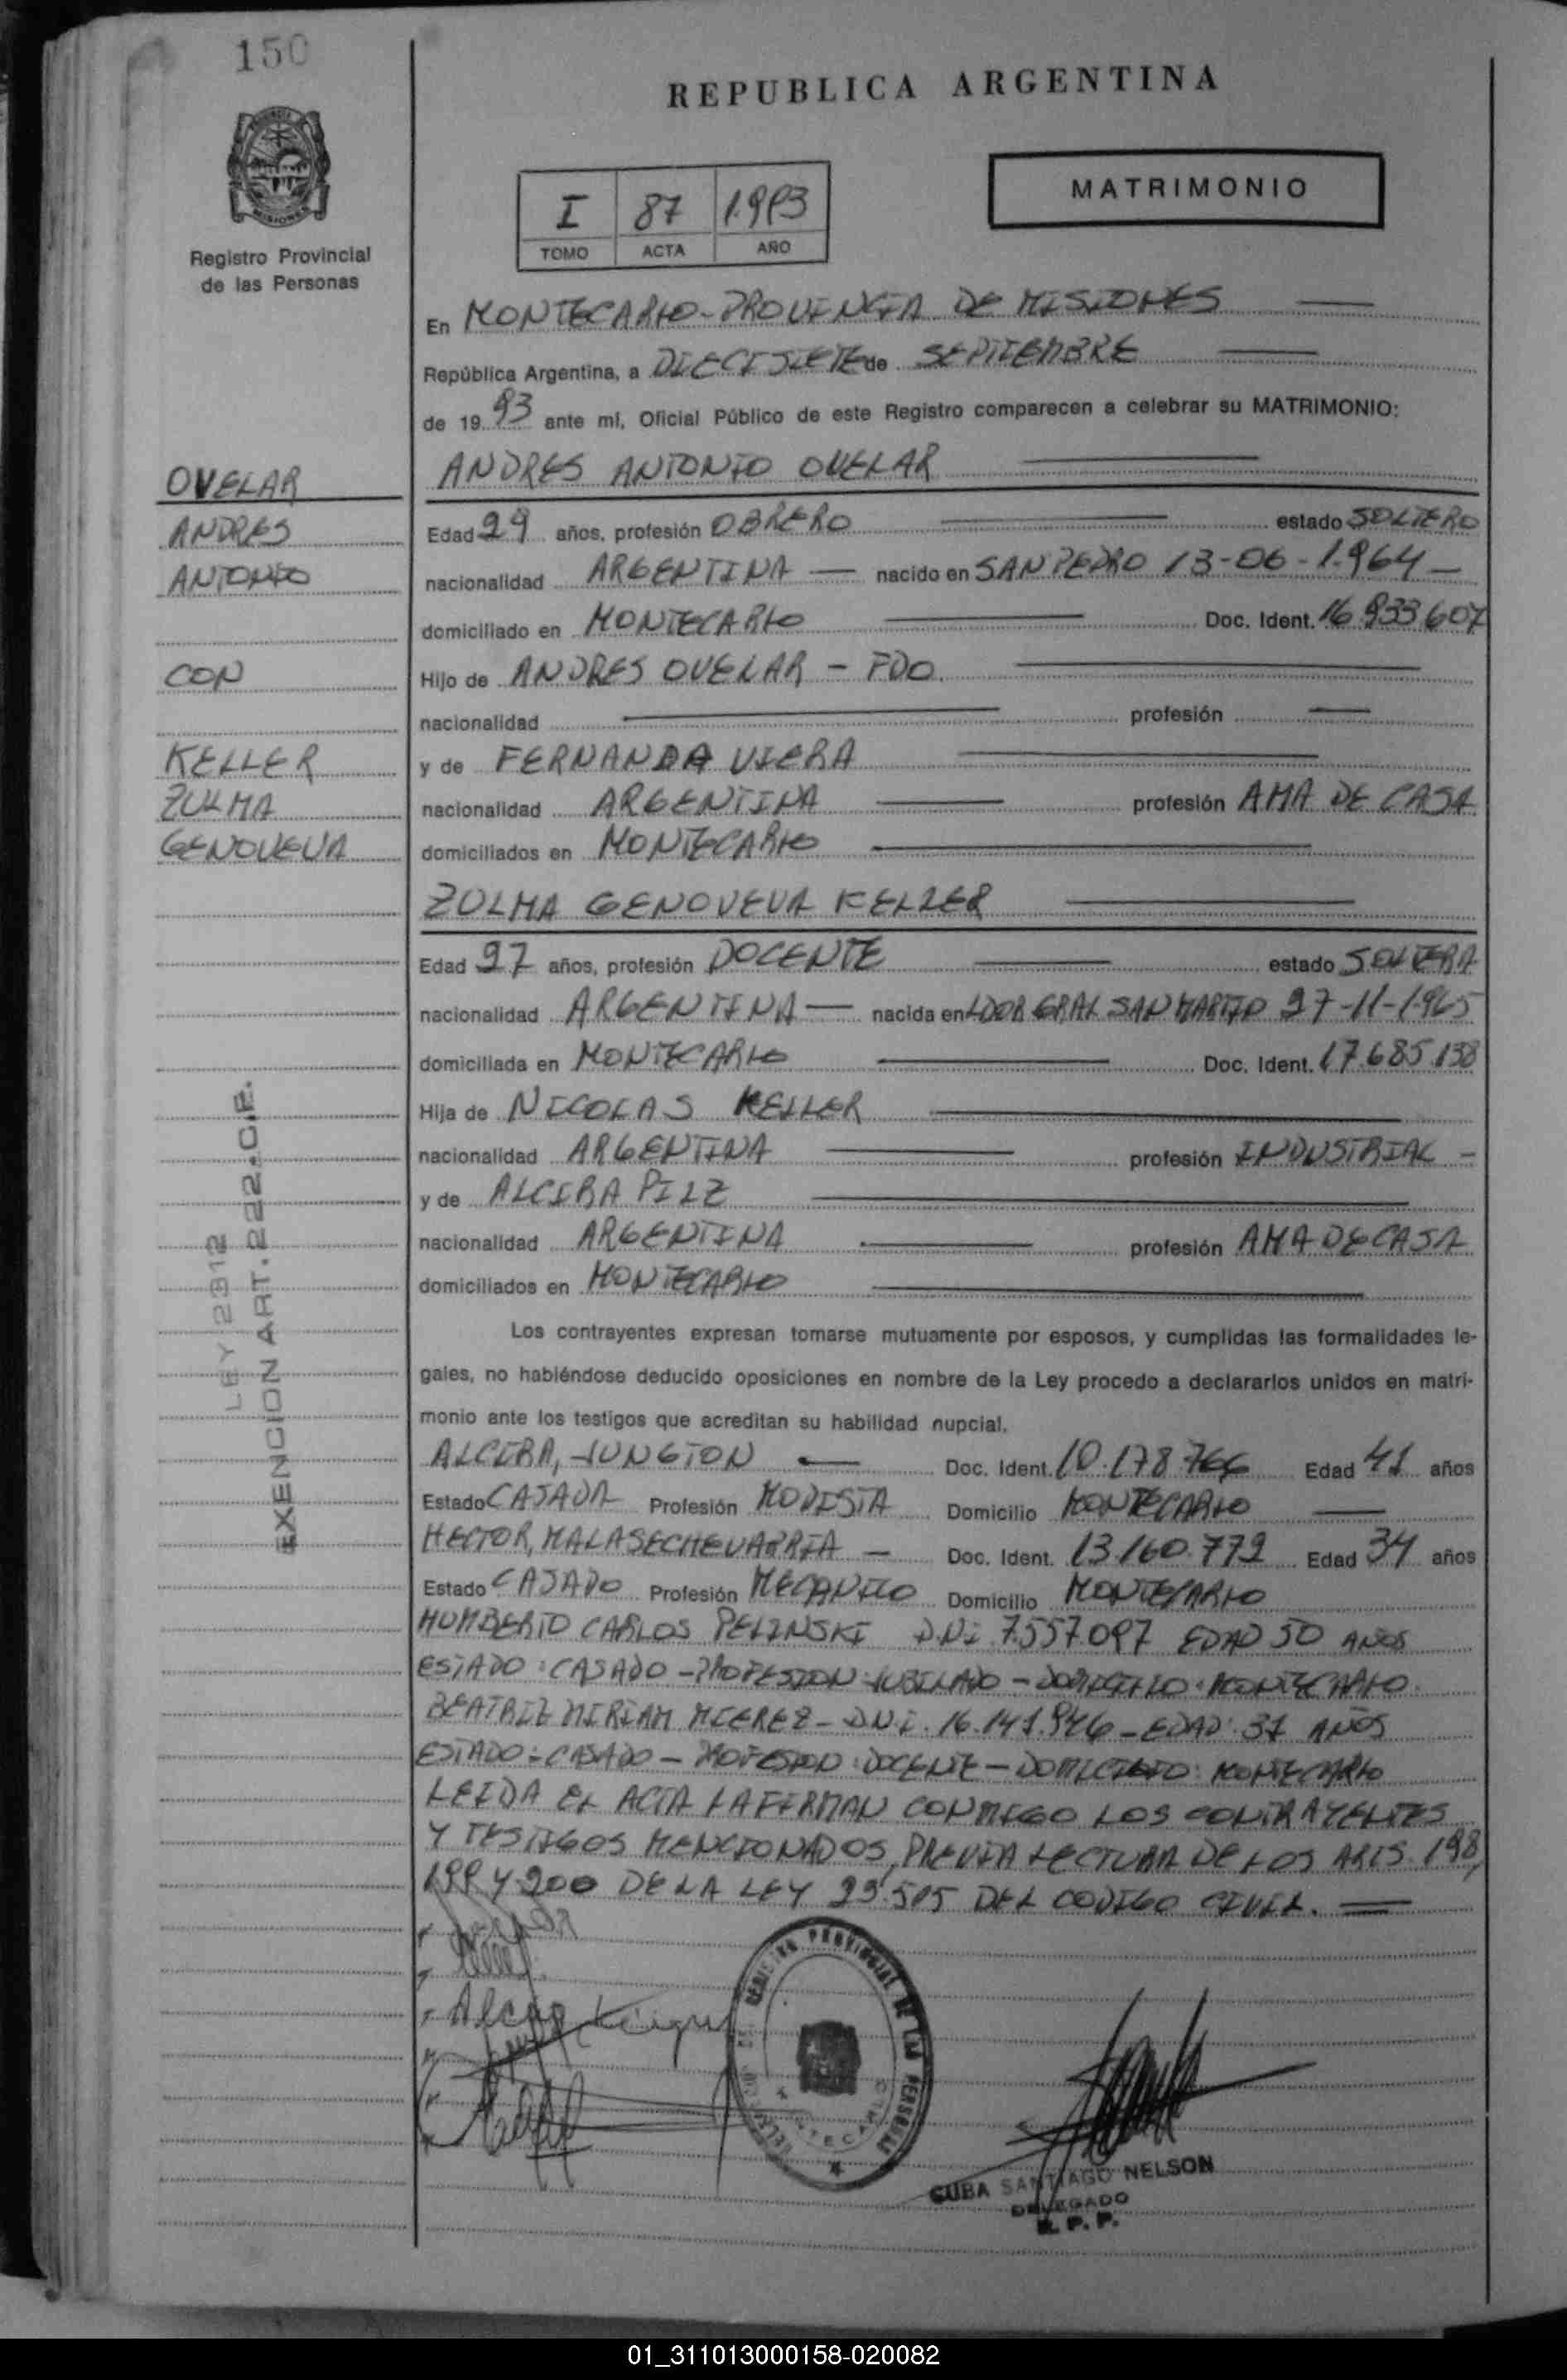 150
REPUBLICA ARGENTINA
MATRIMONIO
I 87 1.993
TOMO ACTA AÑO
Registro Provincial
de las Personas
En MONTECARLO-PROVINCIA DE MISIONES
República Argentina, a DIECISIETE de SEPTIEMBRE
de 19 93 ante mi, Oficial Público de este Registro comparecen a celebrar su MATRIMONIO:
OVELAR
ANDRES
ANTONIO
CON
KELLER
ZULMA
GENOVEVA
LEY 2312
EXENCION ART. 222.C.P.
ANDRES ANTONIO OVELAR
Edad 29 años, profesión OBRERO estado SOLTERO
nacionalidad ARGENTINA — nacido en SAN PEDRO 13-06-1.964 —
domiciliado en MONTECARLO Doc. Ident. 16.933.607
Hijo de ANDRES OVELAR - FDO.
nacionalidad — profesión —
y de FERNANDA VIERA
nacionalidad ARGENTINA profesión AMA DE CASA
domiciliados en MONTECARLO
ZULMA GENOVEVA KELLER
Edad 27 años, profesión DOCENTE estado SOLTERA
nacionalidad ARGENTINA — nacida en LDOR GRAL SAN MARTIN 27-11-1.965
domiciliada en MONTECARLO Doc. Ident. 17.685.138
Hija de NICOLAS KELLER
nacionalidad ARGENTINA profesión INDUSTRIAL -
y de ALCIRA PILZ
nacionalidad ARGENTINA profesión AMA DE CASA
domiciliados en MONTECARLO
Los contrayentes expresan tomarse mutuamente por esposos, y cumplidas las formalidades le-
gales, no habiéndose deducido oposiciones en nombre de la Ley procedo a declararlos unidos en matri-
monio ante los testigos que acreditan su habilidad nupcial.
ALCIRA, JUNGTON — Doc. Ident. 10.178.766 Edad 41 años
Estado CASADA Profesión MODISTA Domicilio MONTECARLO
HECTOR, MALASECHEVARRIA — Doc. Ident. 13.160.772 Edad 34 años
Estado CASADO Profesión MECANICO Domicilio MONTECARLO
HUMBERTO CARLOS PELINSKI D.N.I 7.557.097 EDAD 50 AÑOS
ESTADO: CASADO - PROFESION: JUBILADO - DOMICILIO: MONTECARLO.
BEATRIZ MIRIAM MIEREZ - D.N.I. 16.141.946 - EDAD: 31 AÑOS
ESTADO: CASADO - PROFESION: DOCENTE - DOMICILIO: MONTECARLO
LEIDA EL ACTA LA FIRMAN CONMIGO LOS CONTRAYENTES
Y TESTIGOS MENCIONADOS, PREVIA LECTURA DE LOS ARTS. 198,
199 Y 200 DE LA LEY 23.515 DEL CODIGO CIVIL.
REGISTRO PROVINCIAL DE LAS PERSONAS
MONTECARLO
CUBA SANTIAGO NELSON
DELEGADO
R. P. P.
01_311013000158-020082